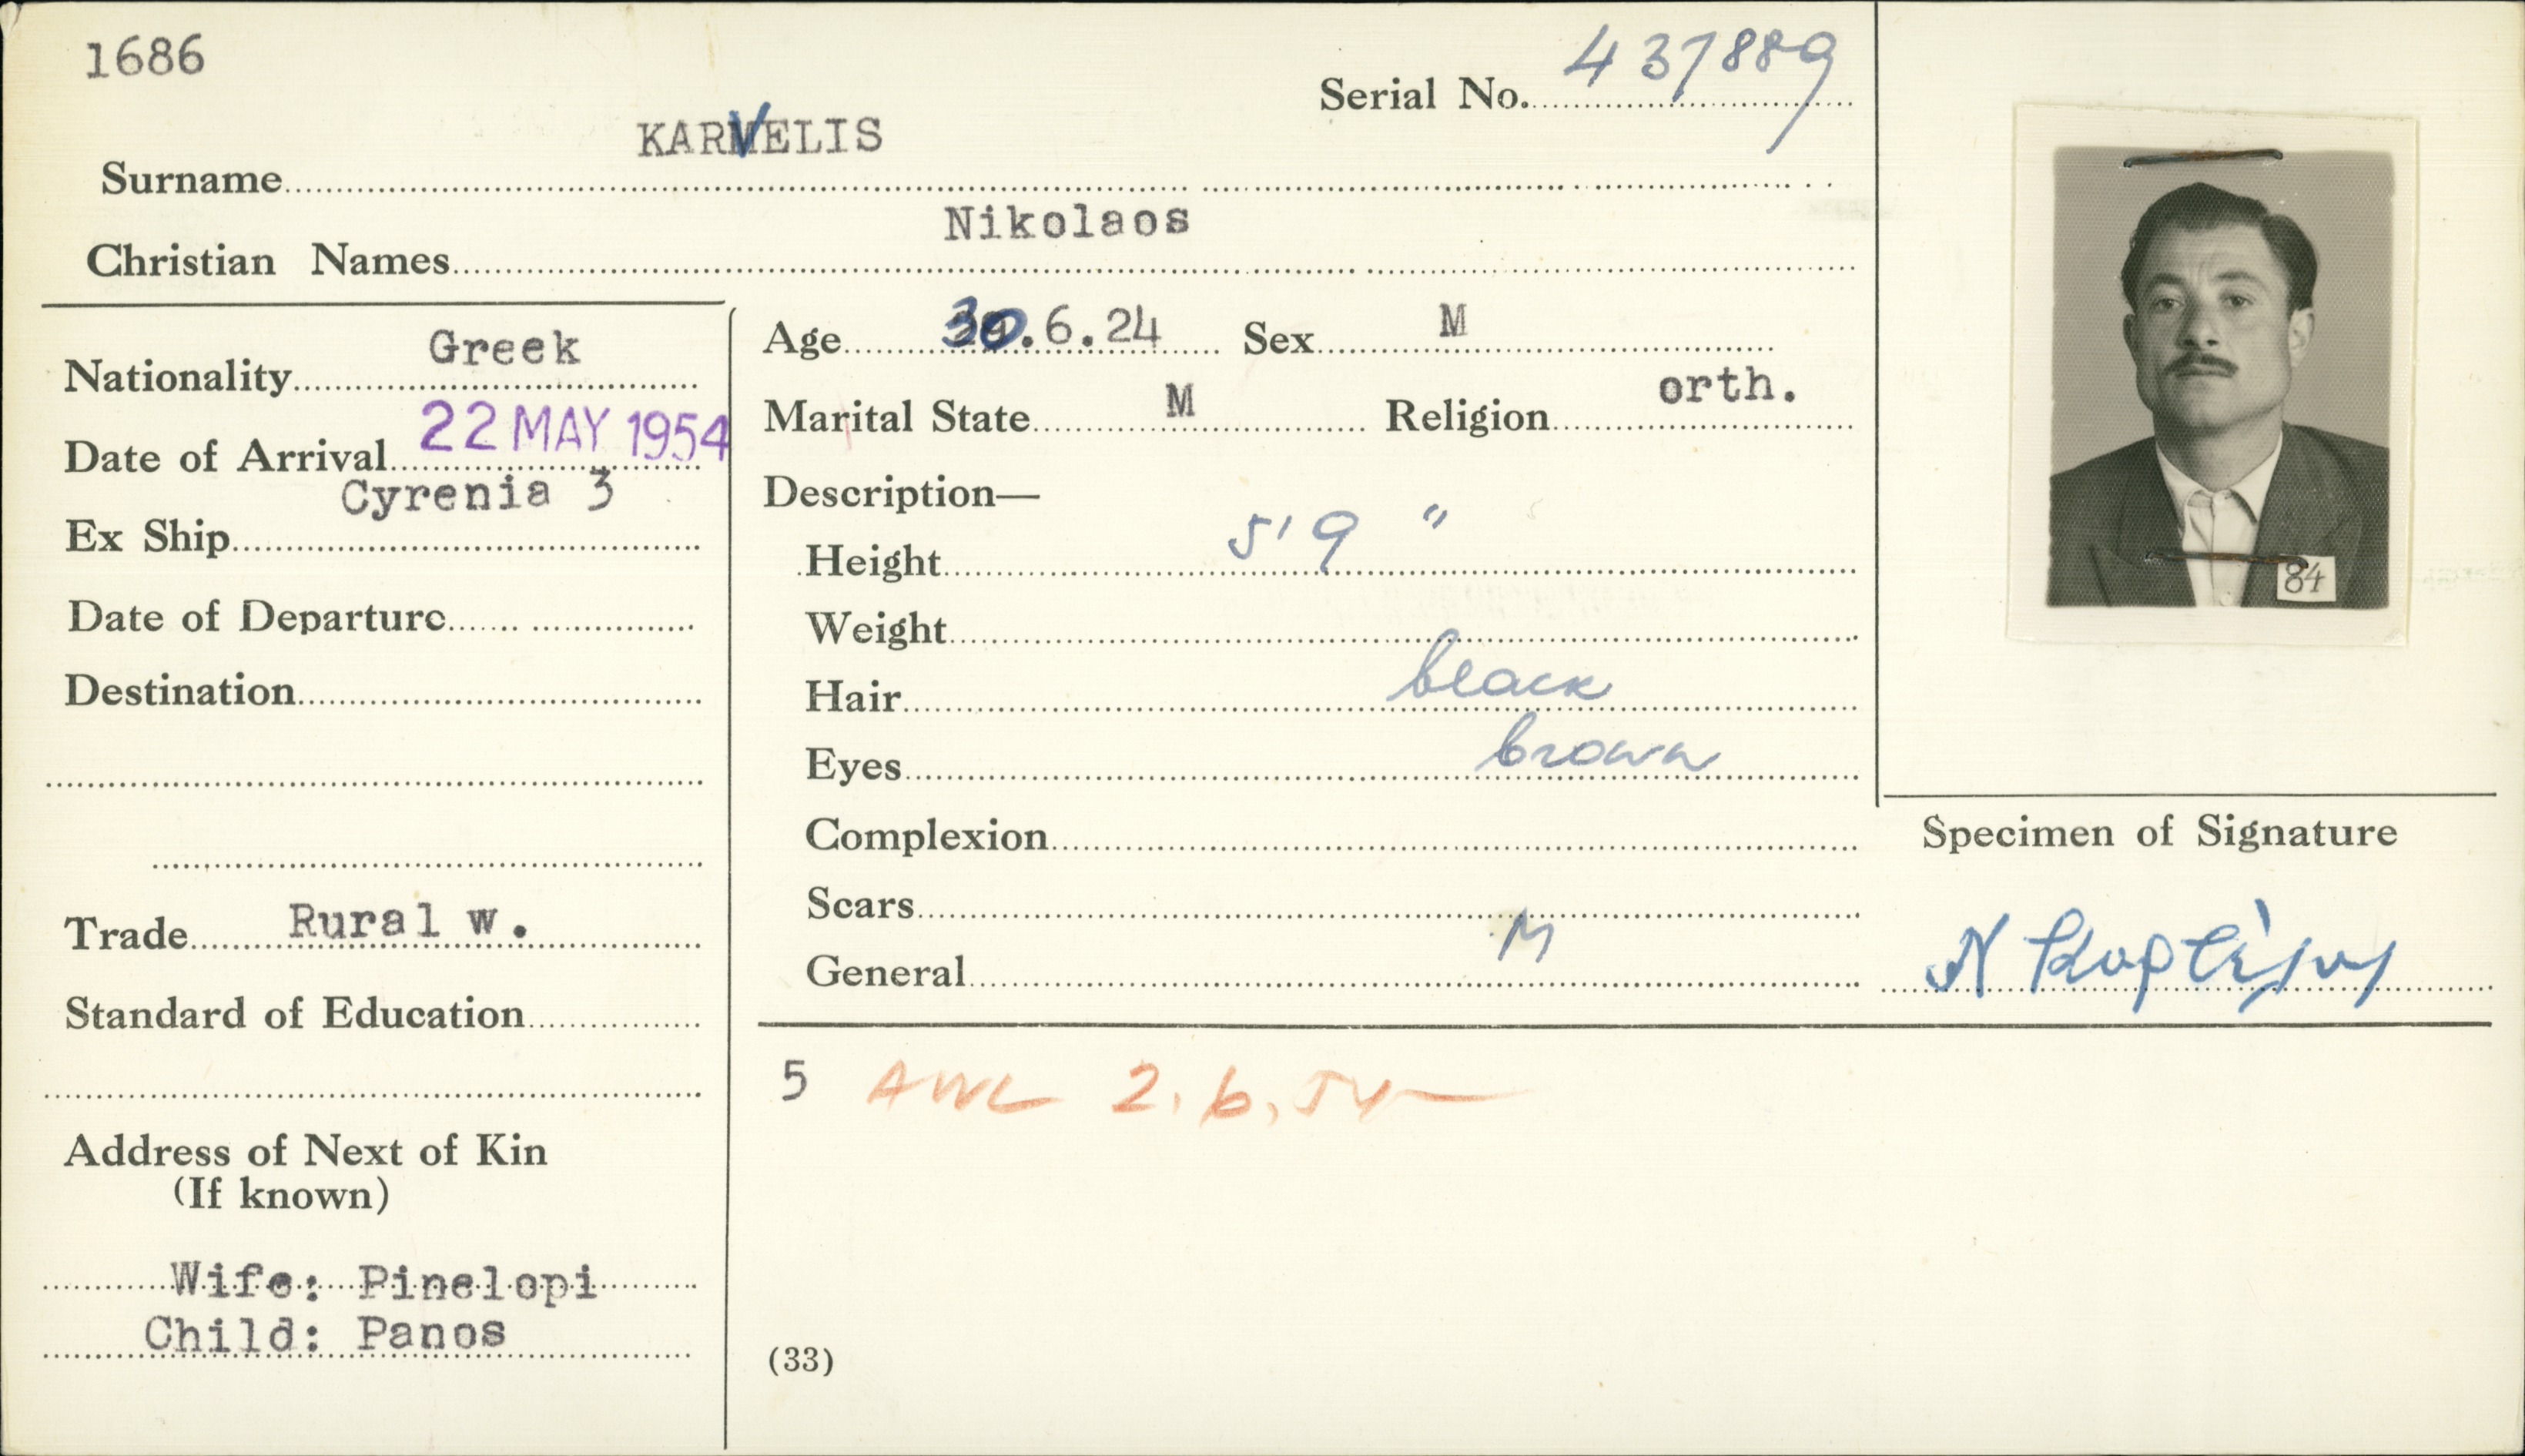 1686
Serial No. 437889
KARVELIS
Surname
Nikolaos
Christian Names
Nationality Greek
Date of Arrival 22 MAY 1954
Ex Ship Cyrenia 3
Date of Departure
Destination
Trade Rural w.
Standard of Education
Address of Next of Kin
(If known)
Wife: Pinelopi
Child: Panos
Age 30.6.24 Sex M
Marital State M Religion orth.
Description—
Height 5'9"
Weight
Hair black
Eyes brown
Complexion
Scars
General M
5 AWL 2.6.54
(33)
84
Specimen of Signature